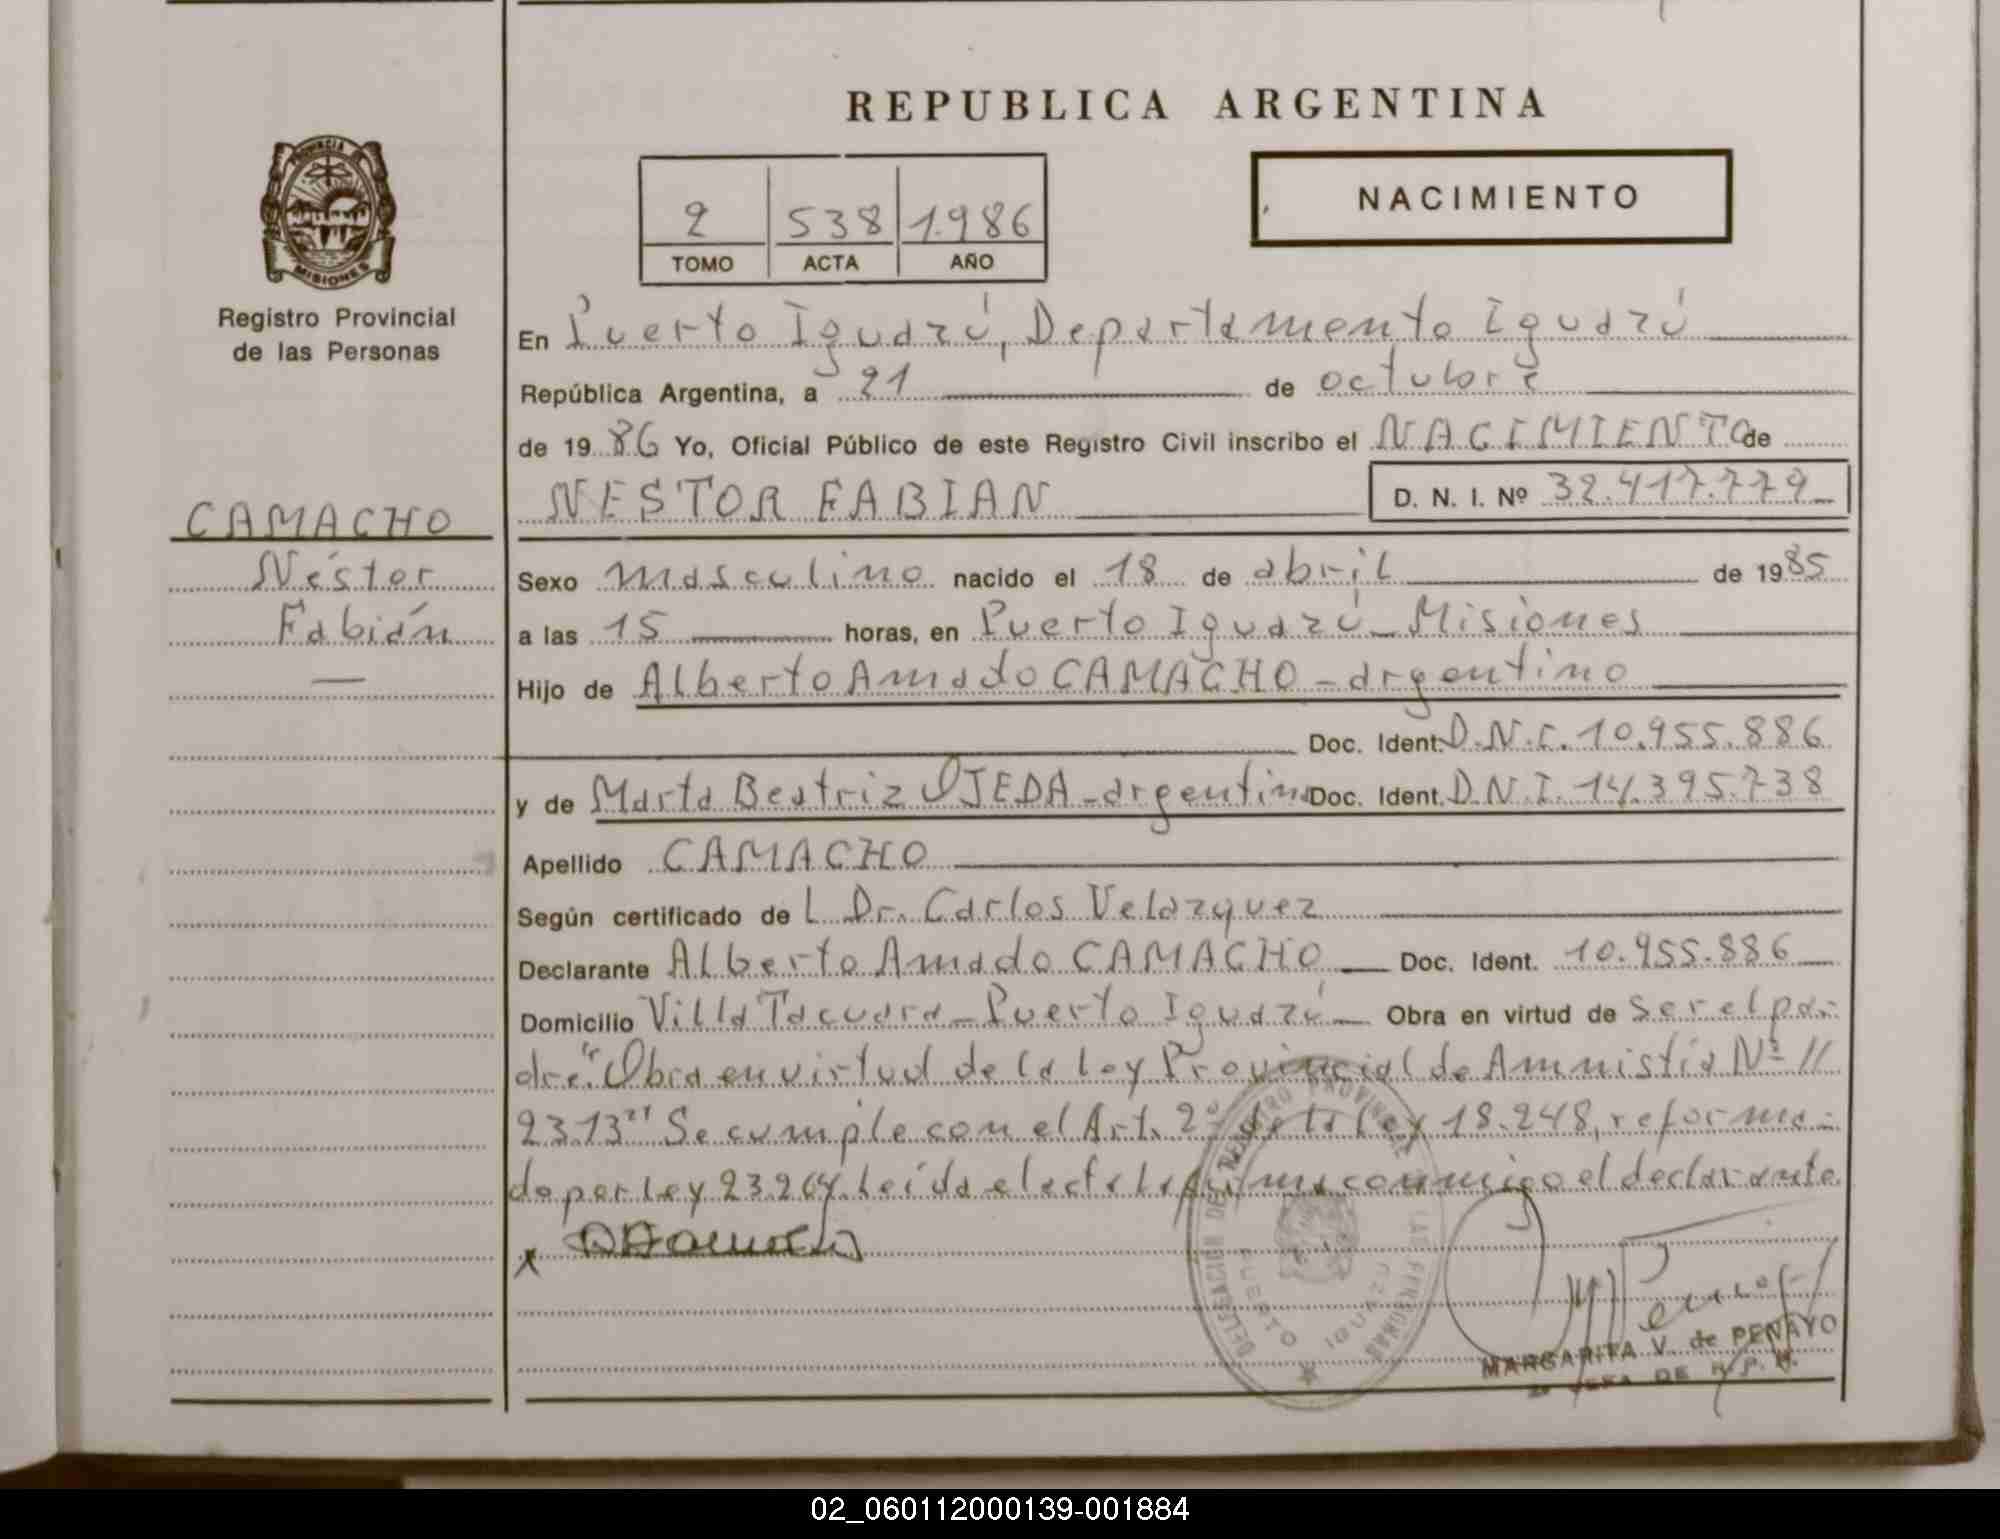 REPUBLICA ARGENTINA
PROVINCIA DE
MISIONES
Registro Provincial
de las Personas
2 538 1.986
TOMO ACTA AÑO
NACIMIENTO
En Puerto Iguazú, Departamento Iguazú
República Argentina, a 21 de octubre
de 19 86 Yo, Oficial Público de este Registro Civil inscribo el NACIMIENTO de
NESTOR FABIAN D. N. I. Nº 32.417.779
CAMACHO
Néstor
Fabián
—
Sexo masculino nacido el 18 de abril de 1985
a las 15 horas, en Puerto Iguazú - Misiones
Hijo de Alberto Amado CAMACHO - argentino
Doc. Ident. D.N.I. 10.955.886
y de Marta Beatriz OJEDA - argentina Doc. Ident. D.N.I. 14.395.738
Apellido CAMACHO
Según certificado de L Dr. Carlos Velazquez
Declarante Alberto Amado CAMACHO Doc. Ident. 10.955.886
Domicilio Villa Tacuara - Puerto Iguazú Obra en virtud de ser el pa-
dre. "Obra en virtud de la ley Provincial de Amnistía Nº //
2313" Se cumple con el Art. 2º de la ley 18.248, reforma-
da por ley 23.264. Leída el acta la firma conmigo el declarante
x
DELEGACION DEL REGISTRO PROVINCIAL DE LAS PERSONAS
PUERTO IGUAZU
MARGARITA V. de PENAYO
DE R. P. P.
02_060112000139-001884